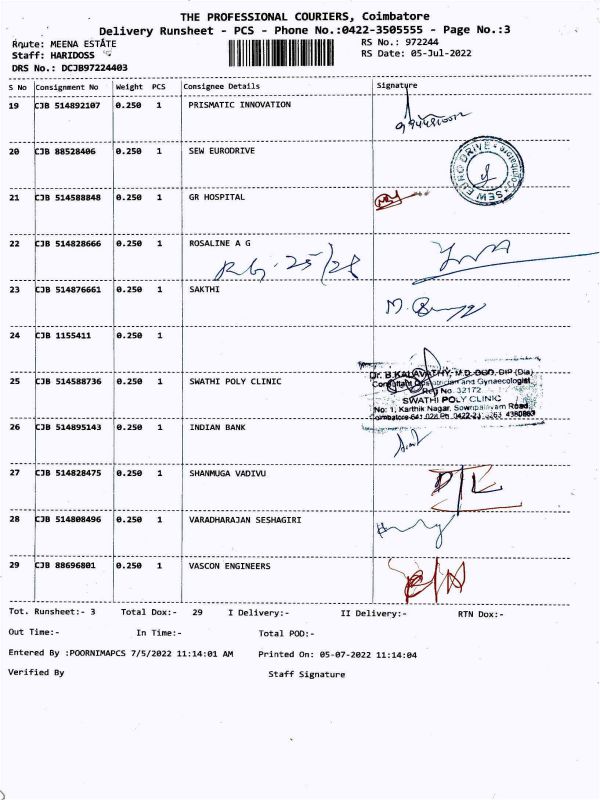 THE PROFESSIONAL COURIERS, Coimbatore
Delivery Runsheet - PCS - Phone No.:0422-3505555 - Page No.:3
Route: MEENA ESTATE
RS No.: 972244
Staff: HARIDOSS
RS Date: 05-Jul-2022
DRS No.: DCJB97224403
S No Consignment No Weight PCS Consignee Details Signature
19 CJB 514892107 0.250 1 PRISMATIC INNOVATION
20 CJB 88528406 0.250 1 SEW EURODRIVE
SEW EURO DRIVE Coimbatore
21 CJB 514588848 0.250 1 GR HOSPITAL
22 CJB 514828666 0.250 1 ROSALINE A G
23 CJB 514876661 0.250 1 SAKTHI
24 CJB 1155411 0.250 1
Dr. B.KALAVATHY, M.D. DGO, DIP (Dia)
Consultant Obstetrician and Gynaecologist
Reg No. 32172
25 CJB 514588736 0.250 1 SWATHI POLY CLINIC
SWATHI POLY CLINIC
No: 1, Karthik Nagar, Sowripalayam Road,
26 CJB 514895143 0.250 1 INDIAN BANK
27 CJB 514828475 0.250 1 SHANMUGA VADIVU
28 CJB 514808496 0.250 1 VARADHARAJAN SESHAGIRI
29 CJB 88696801 0.250 1 VASCON ENGINEERS
Tot. Runsheet:- 3 Total Dox:- 29 I Delivery:- II Delivery:- RTN Dox:-
Out Time:- In Time:- Total POD:-
Entered By :POORNIMAPCS 7/5/2022 11:14:01 AM Printed On: 05-07-2022 11:14:04
Verified By Staff Signature